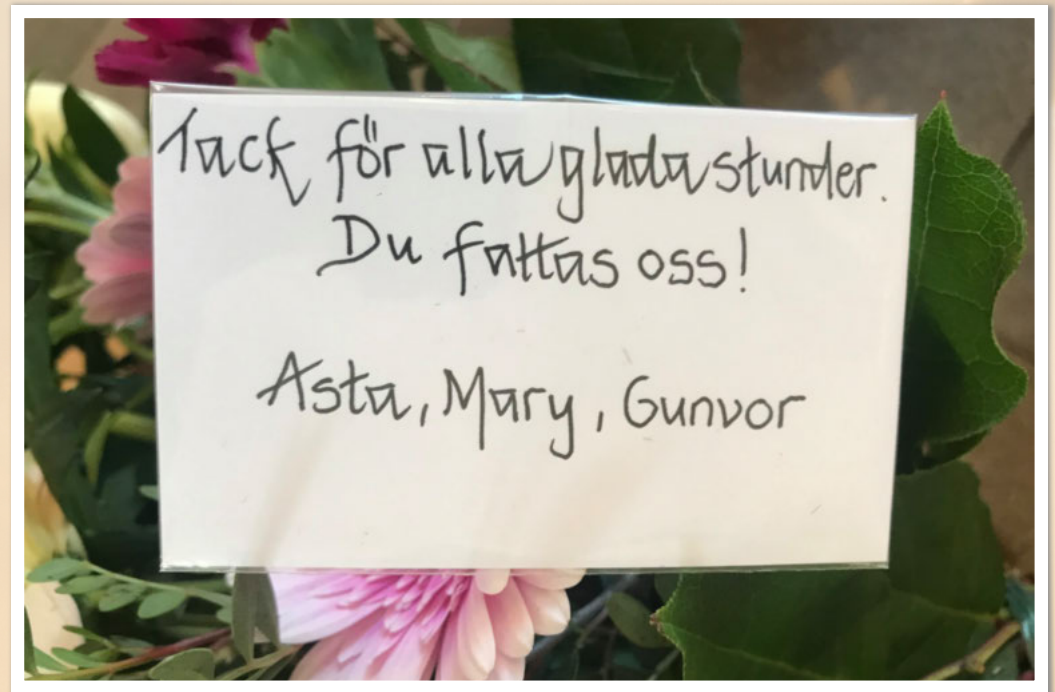 Tack för alla glada stunder.
Du fattas oss!
Asta, Mary, Gunvor